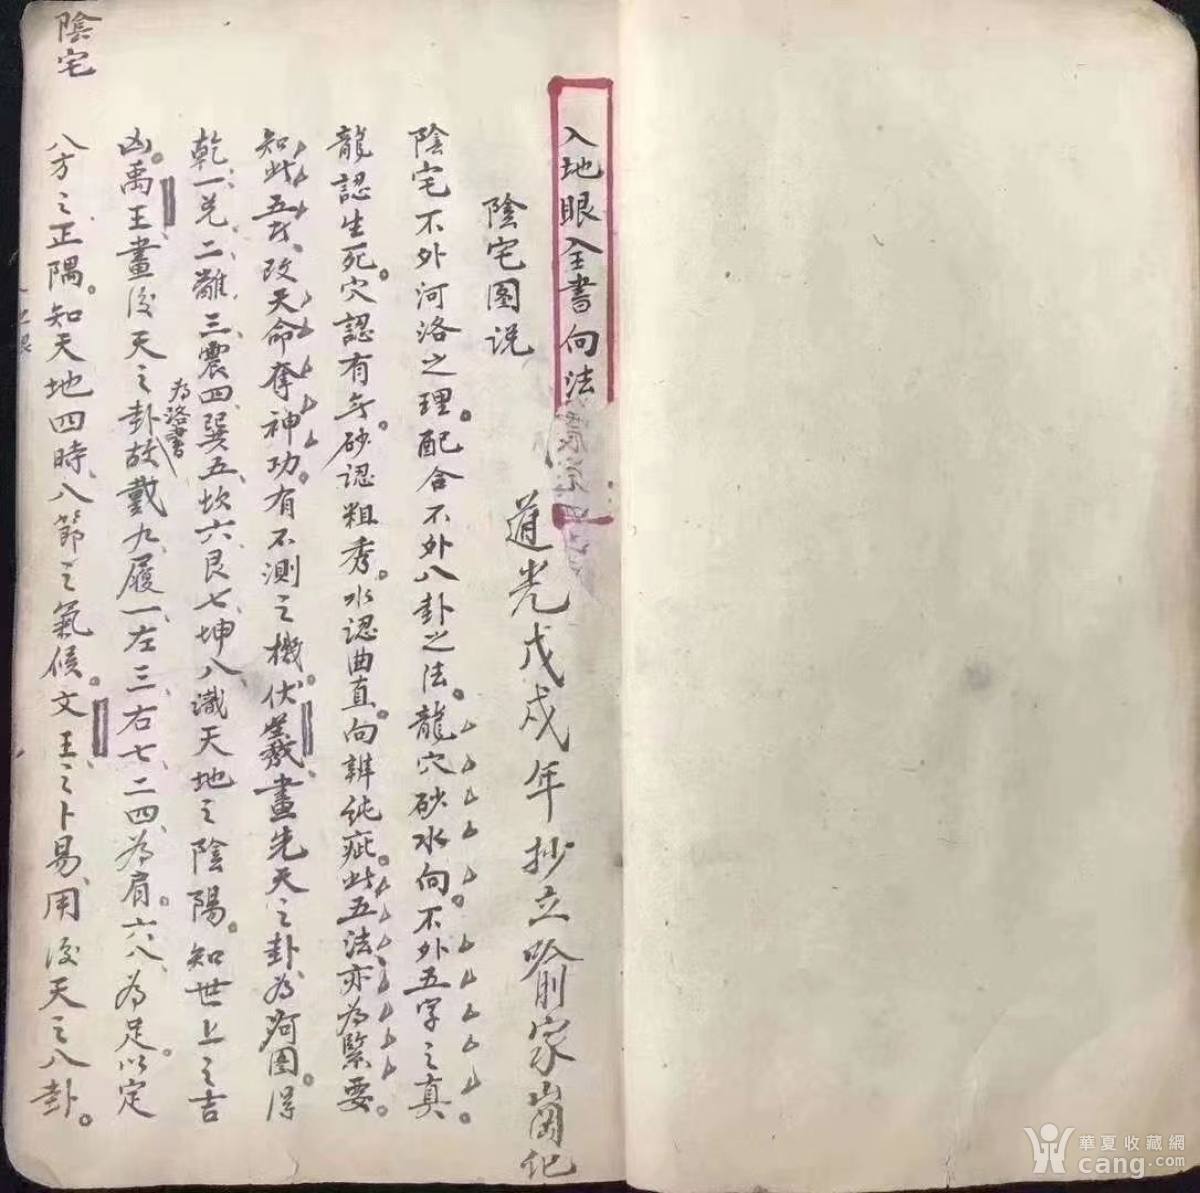 入地眼全書向法
道光戊戌年抄立喻家崗仡
陰宅圖说
陰宅不外河洛之理。配合不外八卦之法。龍穴砂水向。不外五字之真。
龍認生死。穴認有兮。砂认粗秀。水认曲直。向辨纯疵。此五法亦为緊要。
知此五才、改天命奪神功。有不測之機。伏羲畫先天之卦、为河圖。淂
乾一、兑二、離三、震四、巽五、坎六、艮七、坤八、識天地之陰陽。知世上之吉
凶。禹王畫後天之卦、故戴九、履一、左三、右七、二四为肩。六八、为足。以定
为洛書
八方之正隅。知天地四時、八節之氣候。文王之卜易、用後天之八卦。
陰宅
華夏收藏網
cang.com